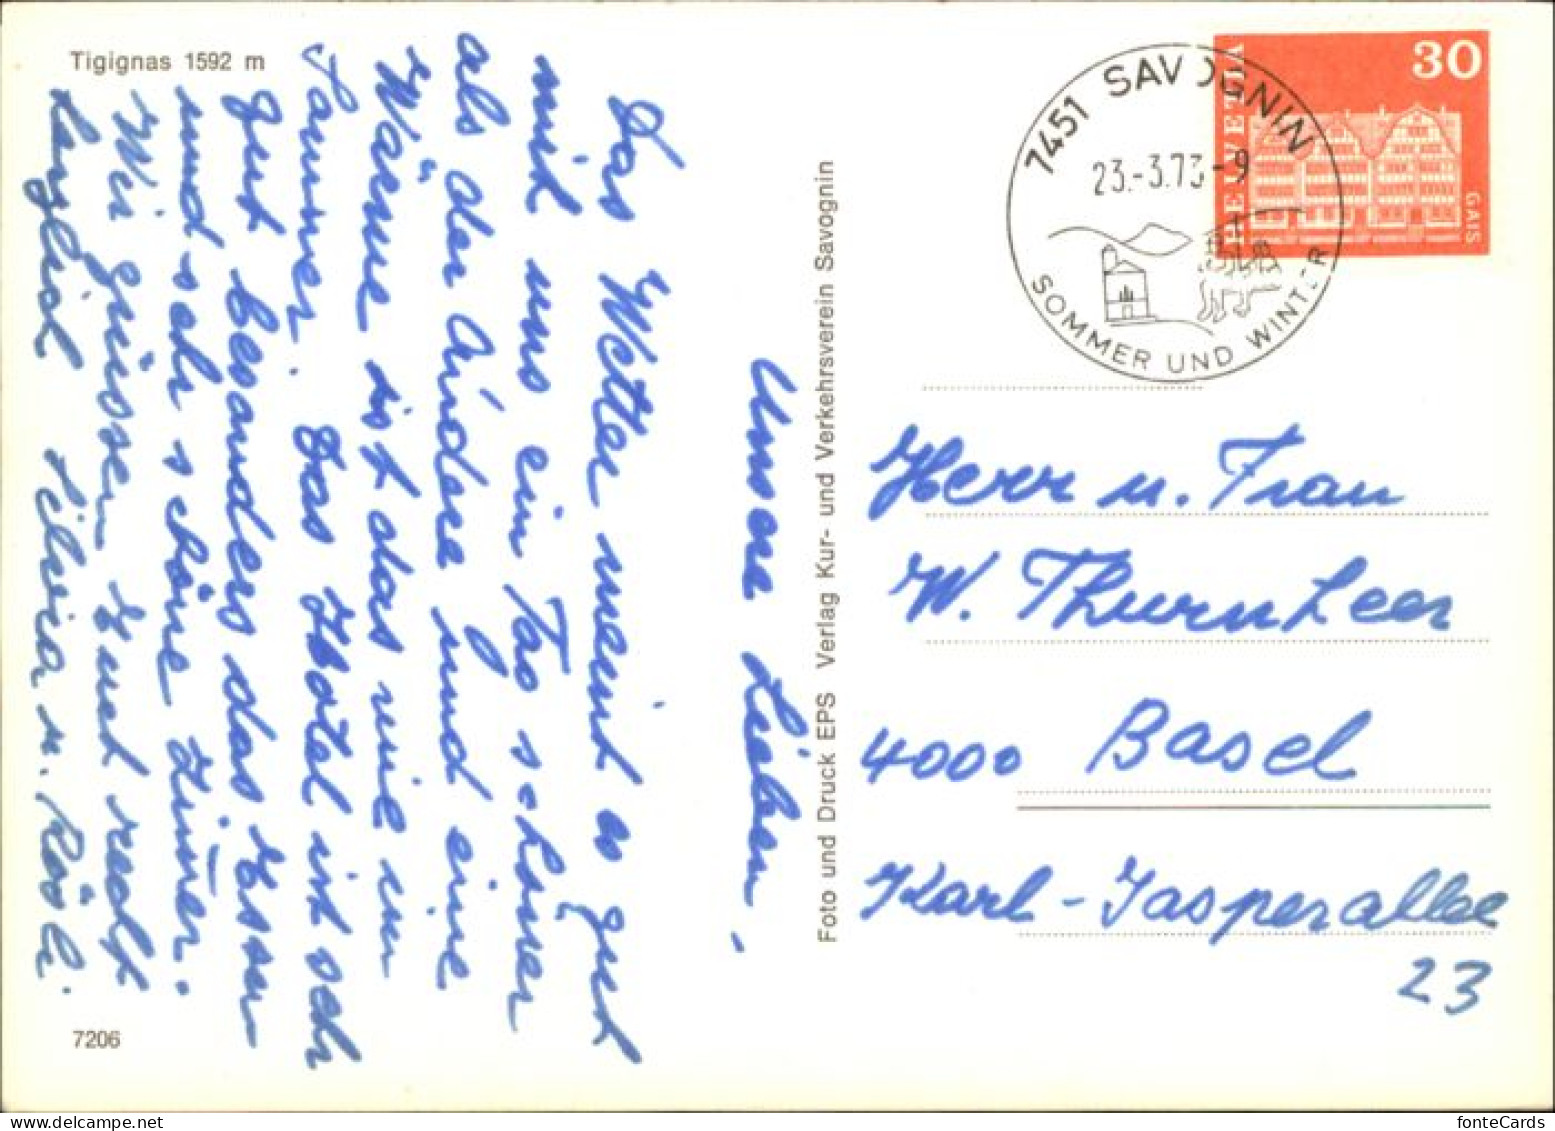 Tigignas 1592 m
Unsere Lieben.
Das Wetter meint es gut
mit uns ein Tag schöner
als der Andere und eine
Wärme ist das wie im
Sommer. Das Hotel ist sehr
gut besonders das Essen
und sehr schöne Zimmer.
Wir grüssen Euch recht
herzlich Silvia u. Rösli.
7206
Foto und Druck EPS Verlag Kur- und Verkehrsverein Savognin
7451 SAVOGNIN
23.-3.73-9
SOMMER UND WINTER
HELVETIA
30
GAIS
Herr u. Frau
W. Thurnheer
4000 Basel
Karl-Jasperallee
23
fonteCards